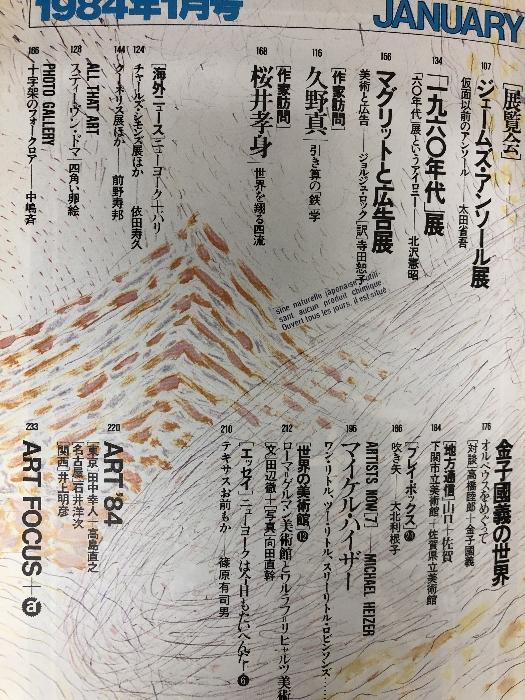 1984年1月号
JANUARY
107
[展覧会]
ジェームズ・アンソール展
仮面以前のアンソール――太田省吾
134
「一九六〇年代」展
「六〇年代」展というアイロニー――北沢憲昭
156
マグリットと広告展
美術と広告――ジョルジュ・ロック 訳 寺田恕子
116
[作家訪問]
久野真
引き算の「鉄」学
168
[作家訪問]
桜井孝身
世界を翔る四流
[海外]ニュース ニューヨーク+パリ
124
チャールズ・シモンズ展ほか――依田寿久
144
クーネリス展ほか――前野寿邦
ALL THAT ART
128
スティーヴン・ドマ「四角い卵絵
PHOTO GALLERY
166
十字架のフォークロア――中嶋斉
Sine naturelle japonaise, utili-
sant aucun produit chimique
Ouvert tous les jours, il est situé
176
金子國義の世界
オルペウスをめぐって
[対談]高橋睦郎―金子國義
184
[地方通信]山口―佐賀
下関市立美術館―佐賀県立美術館
[プレイ・ボックス]
186
吹き矢――大北利根子
195
ARTISTS NOW[7] MICHAEL HEIZER
マイケル・ハイザー
ワン・リトル、ツー・リトル、スリー・リトル・ロビンソンズ……
[世界の美術館]⑫
212
ローマ=ゲルマン美術館とワルラフ=リヒャルツ美術
[文]田辺徹―[写真]向田直幹
[エッセイ]ニューヨークは今日もたいへんだー⑥
210
テキサスお前もか――篠原有司男
220
ART '84
[東京]田中幸人―高島直之
[名古屋]石井洋次
[関西]井上明彦
233
ART FOCUS―ⓐ